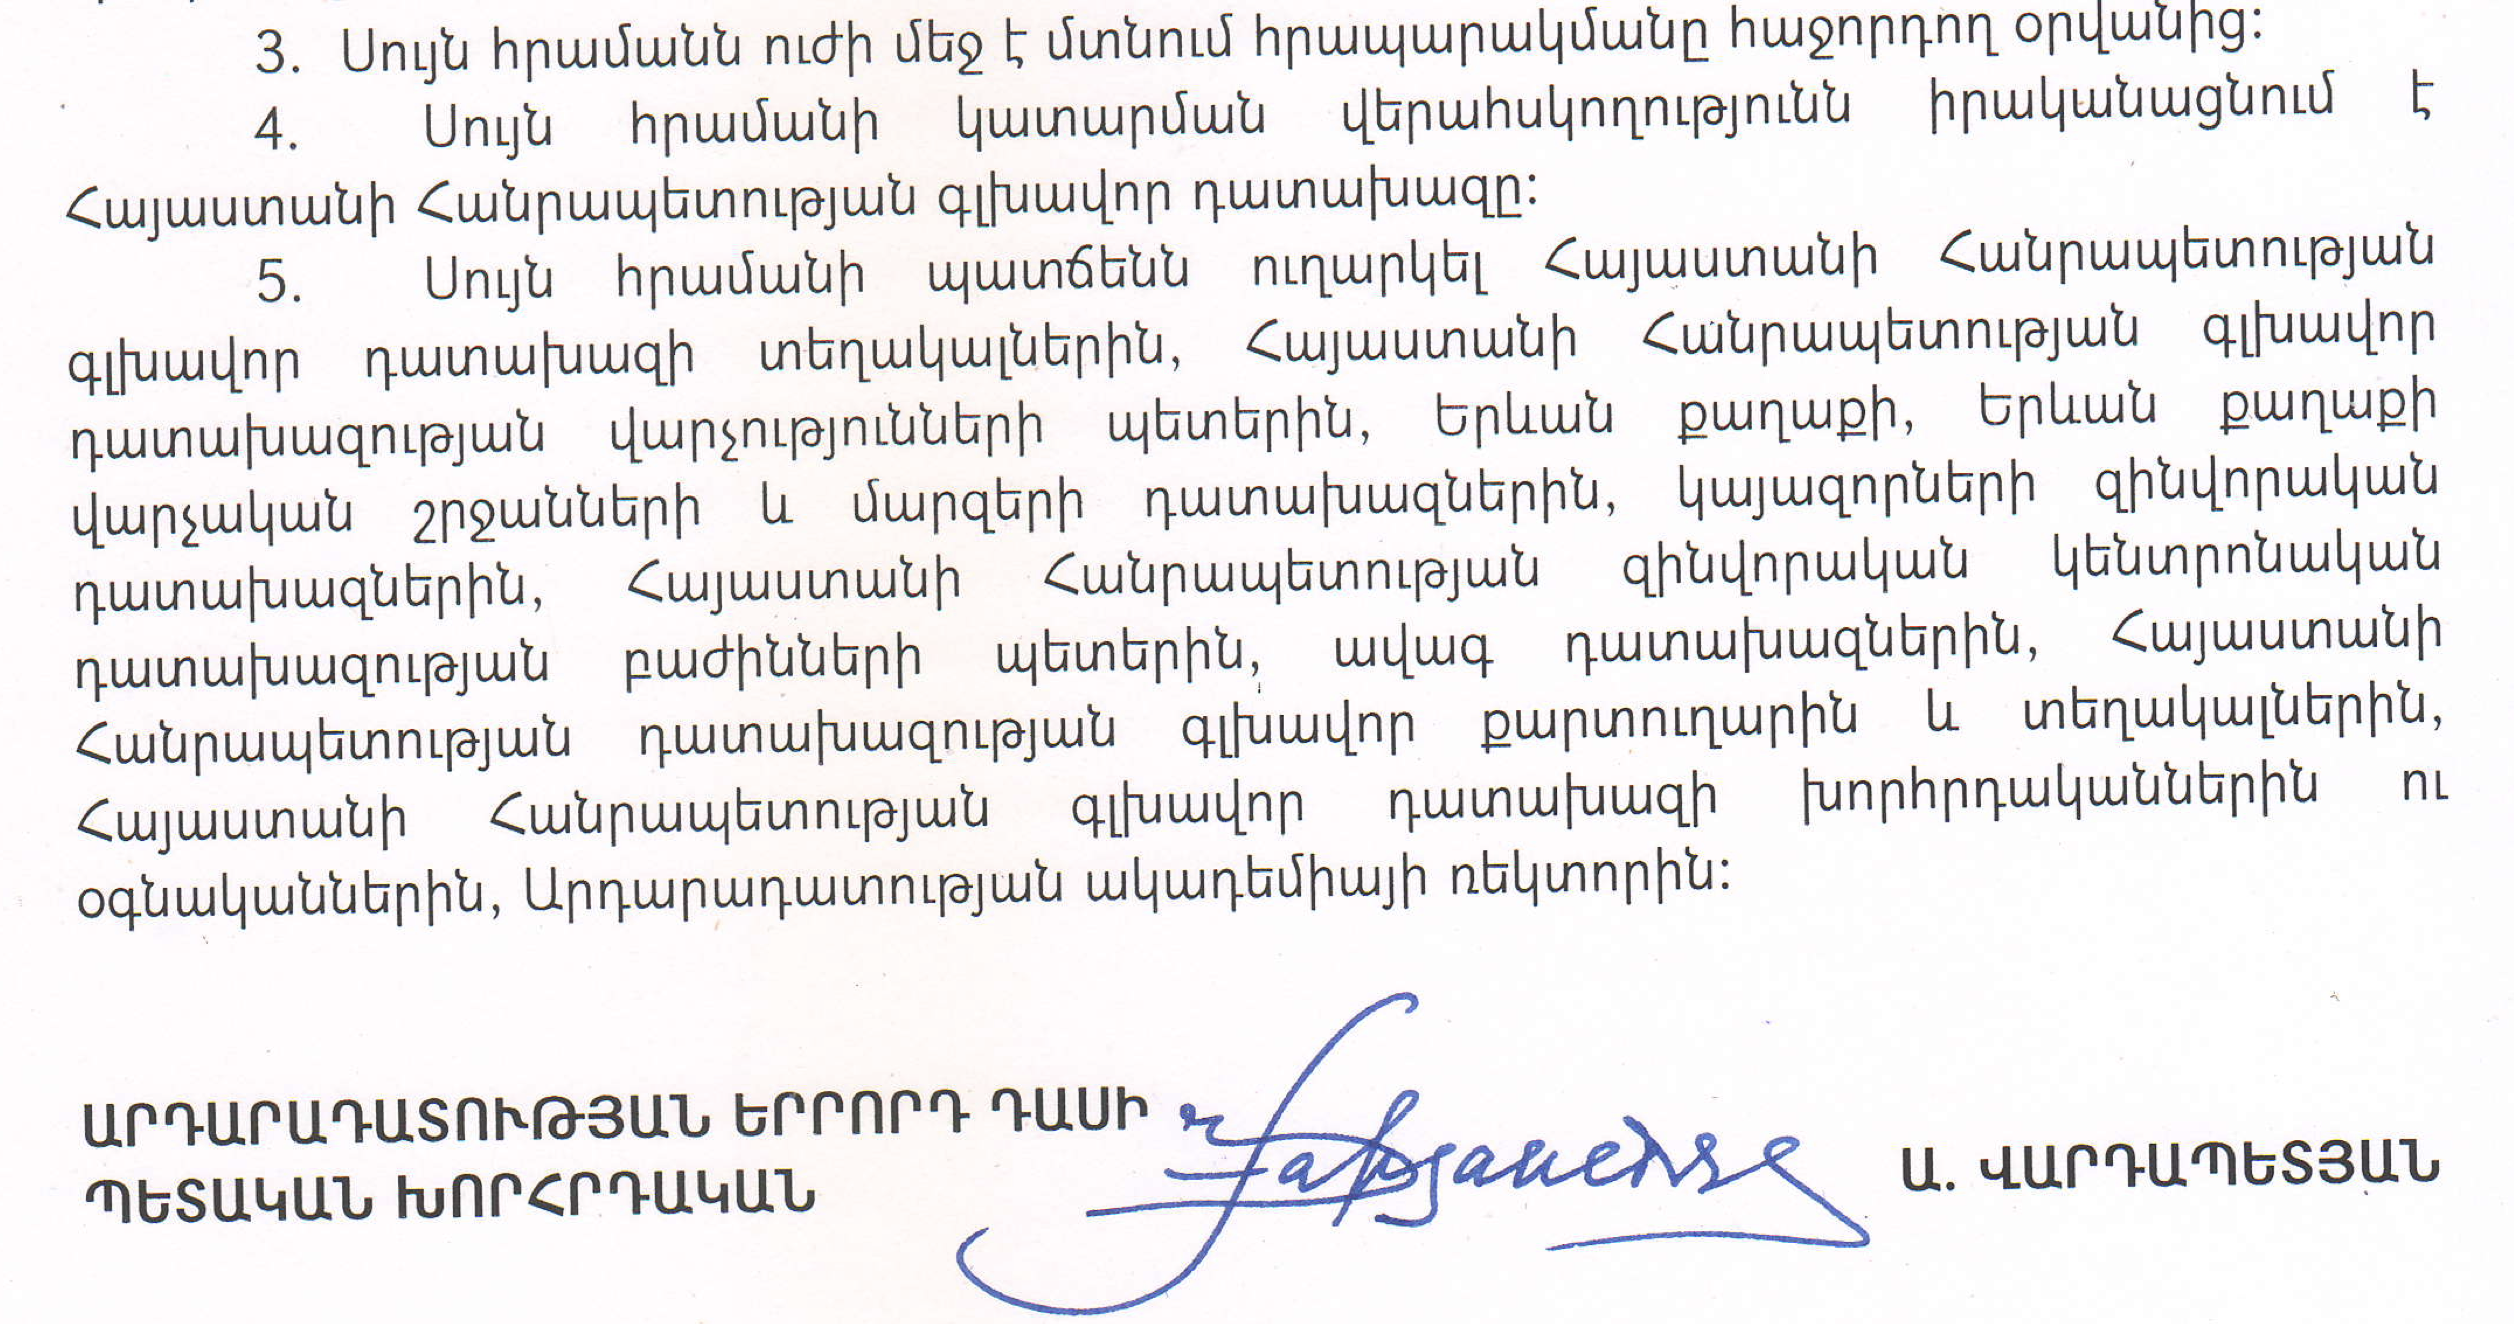 3. Սույն հրամանն ուժի մեջ է մտնում հրապարակմանը հաջորդող օրվանից:
4. Սույն հրամանի կատարման վերահսկողությունն իրականացնում է
Հայաստանի Հանրապետության գլխավոր դատախազը:
5. Սույն հրամանի պատճենն ուղարկել Հայաստանի Հանրապետության
գլխավոր դատախազի տեղակալներին, Հայաստանի Հանրապետության գլխավոր
դատախազության վարչությունների պետերին, Երևան քաղաքի, Երևան քաղաքի
վարչական շրջանների և մարզերի դատախազներին, կայազորների զինվորական
դատախազներին, Հայաստանի Հանրապետության զինվորական կենտրոնական
դատախազության բաժինների պետերին, ավագ դատախազներին, Հայաստանի
Հանրապետության դատախազության գլխավոր քարտուղարին և տեղակալներին,
Հայաստանի Հանրապետության գլխավոր դատախազի խորհրդականներին ու
օգնականներին, Արդարադատության ակադեմիայի ռեկտորին:
ԱՐԴԱՐԱԴԱՏՈՒԹՅԱՆ ԵՐՐՈՐԴ ԴԱՍԻ
ՊԵՏԱԿԱՆ ԽՈՐՀՐԴԱԿԱՆ
Ա. ՎԱՐԴԱՊԵՏՅԱՆ